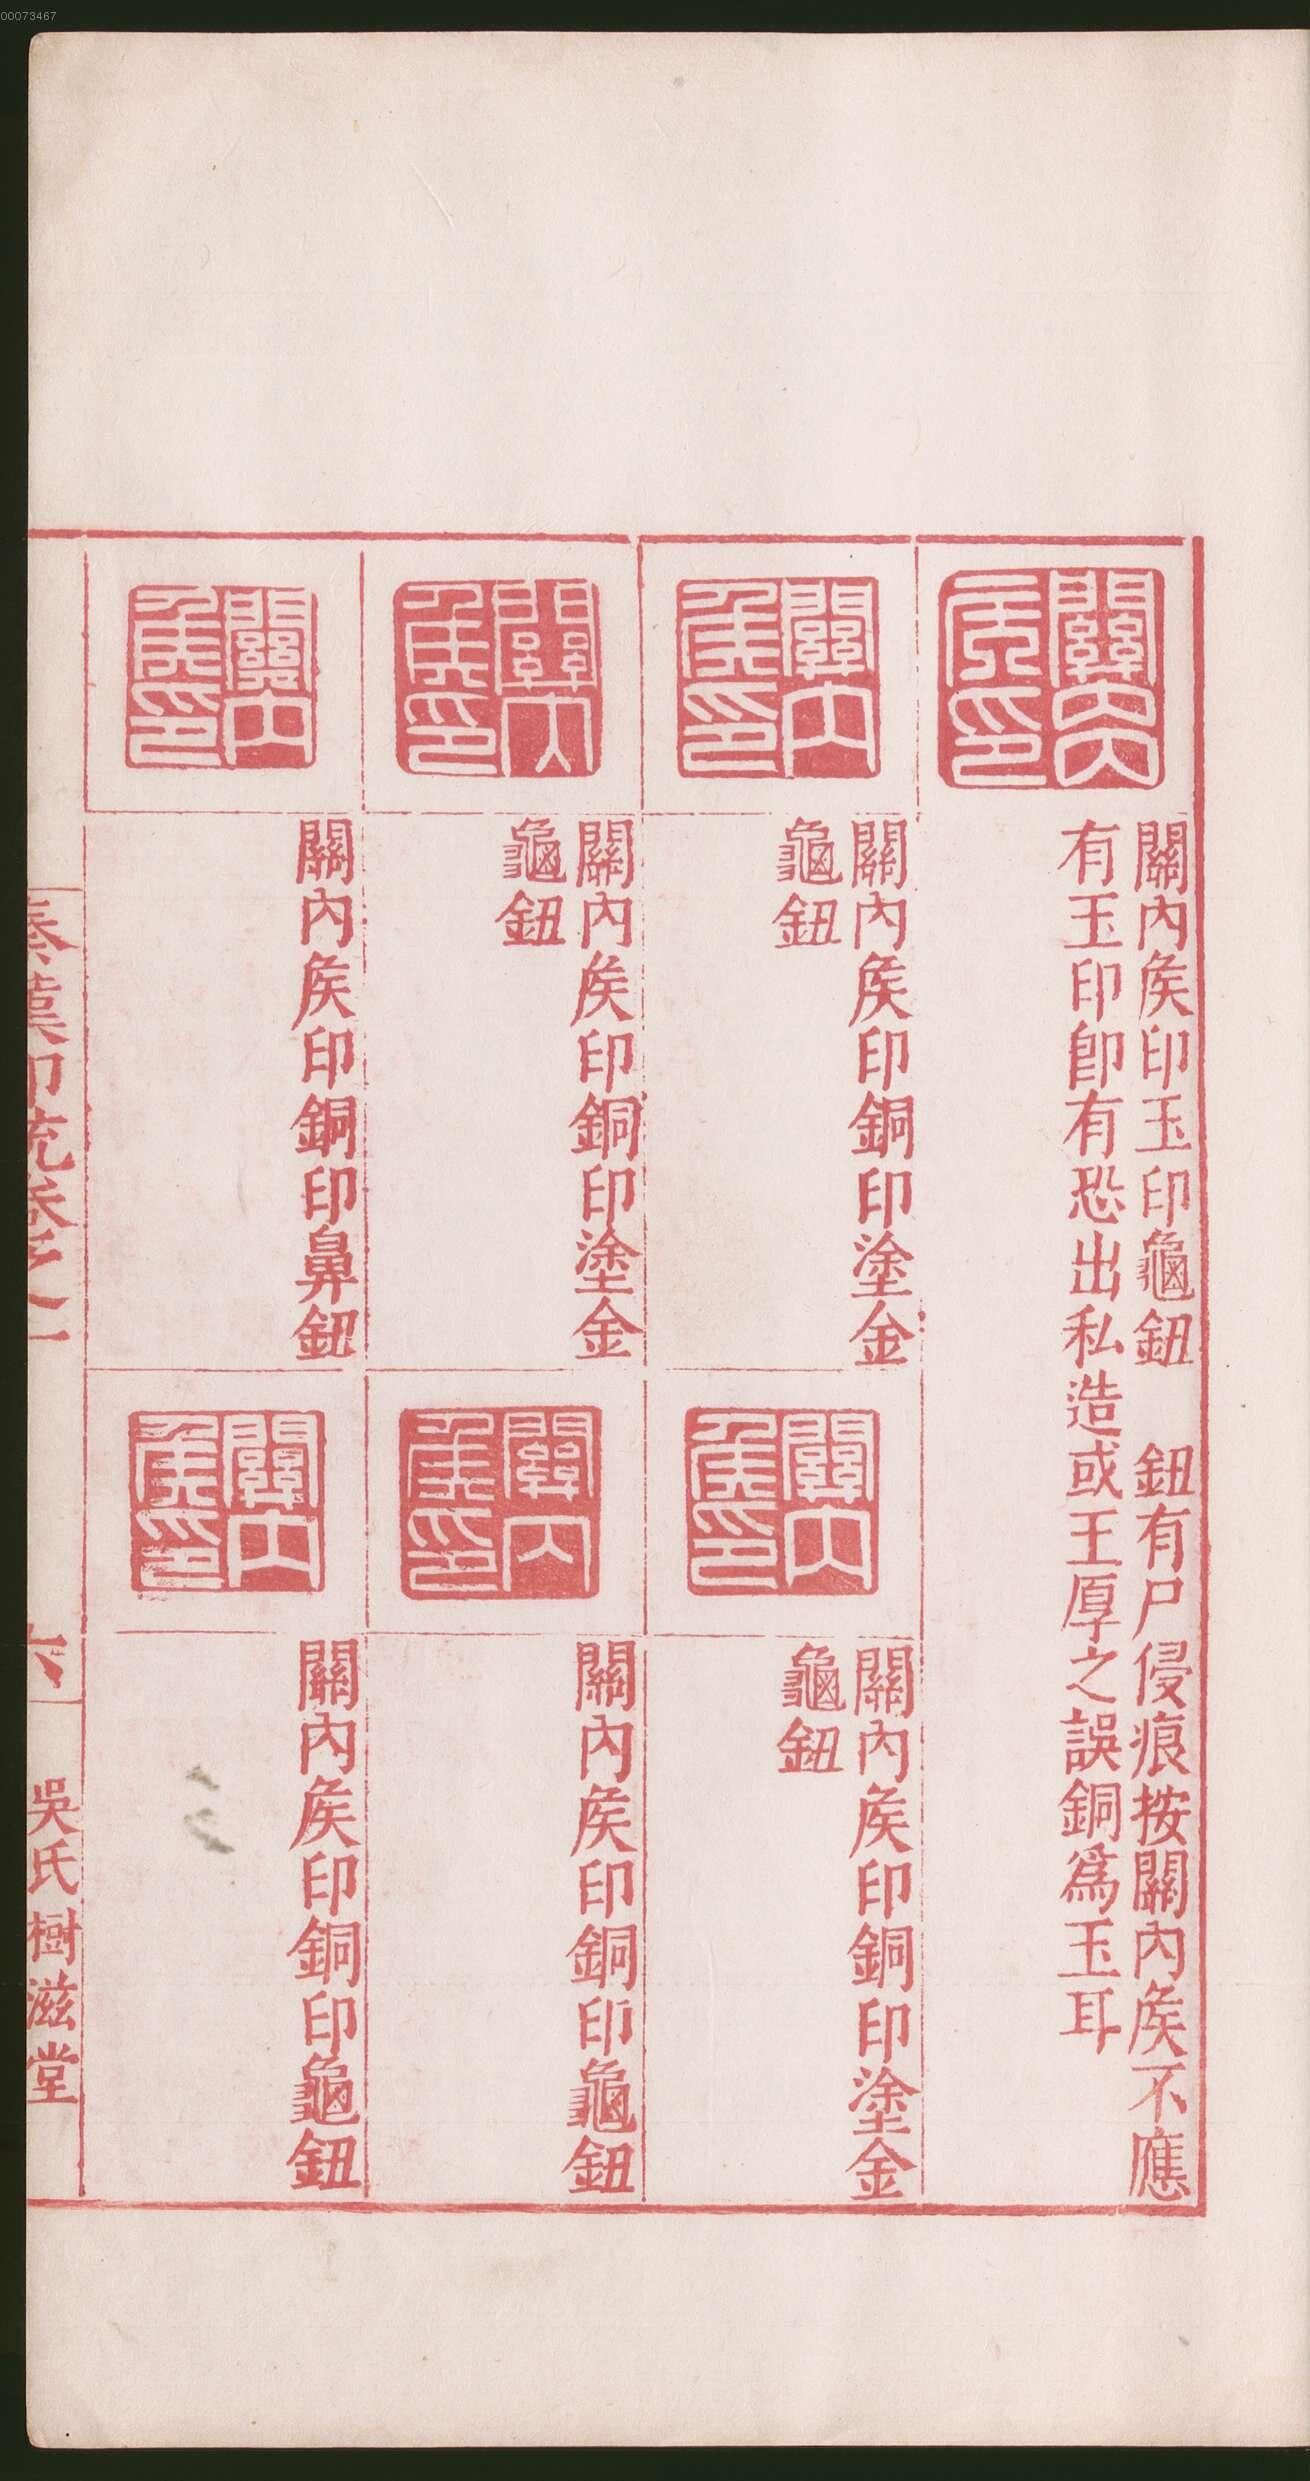 00073467
關內矦印
關內矦印玉印龜鈕　鈕有尸侵痕按關內矦不應
有玉印卽有恐出私造或王厚之誤銅爲玉耳
關內矦印
關內矦印銅印塗金
龜鈕
關內矦印
關內矦印銅印塗金
龜鈕
關內矦印
關內矦印銅印塗金
龜鈕
關內矦印
關內矦印銅印龜鈕
關內矦印
關內矦印銅印鼻鈕
關內矦印
關內矦印銅印龜鈕
秦漢印統卷之一
六
吳氏樹滋堂